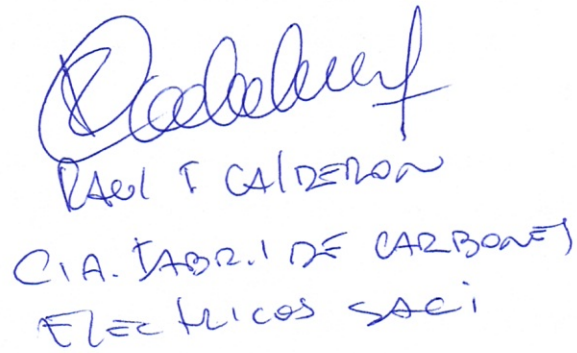 RAUL F CALDERON
CIA. FABR. I DE CARBONES
ELECTRICOS SACI